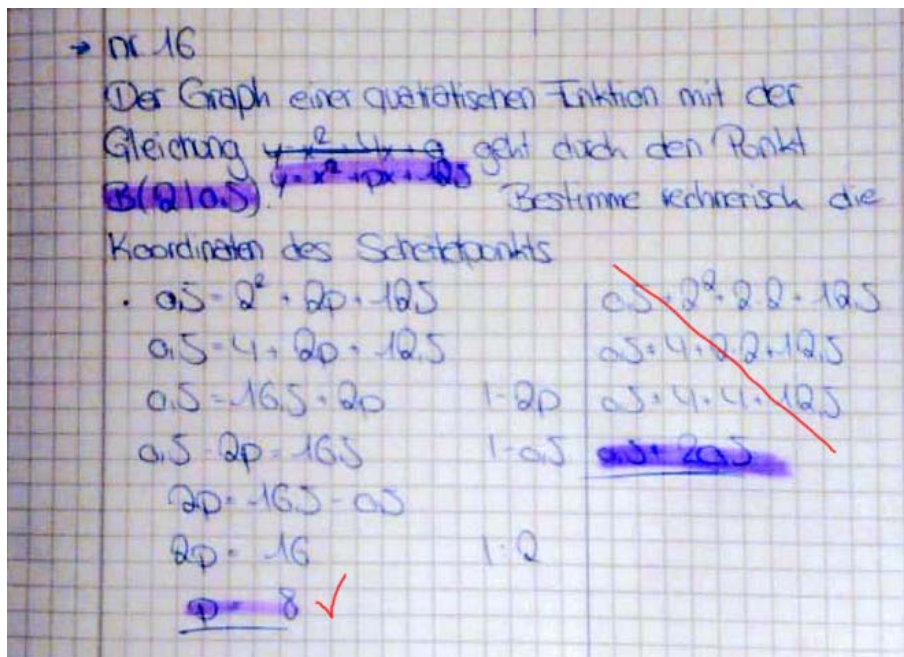 → nr. 16
Der Graph einer quatratischen Funktion mit der
Gleichung y = x² - 4x + 9 geht durch den Punkt
B(2|0,5). y = x² + px + 12,5 Bestimme rechnerisch die
Koordinaten des Scheitelpunkts
0,5 = 2² + 2p + 12,5
0,5 = 4 + 2p + 12,5
0,5 = 16,5 + 2p |-2p
0,5 - 2p = 16,5 |-0,5
2p = -16,5 - 0,5
2p = 16 |:2
p = 8 ✓
0,5 = 2² + 2·2 + 12,5
0,5 = 4 + 2·2 + 12,5
0,5 = 4 + 4 + 12,5
0,5 = 20,5